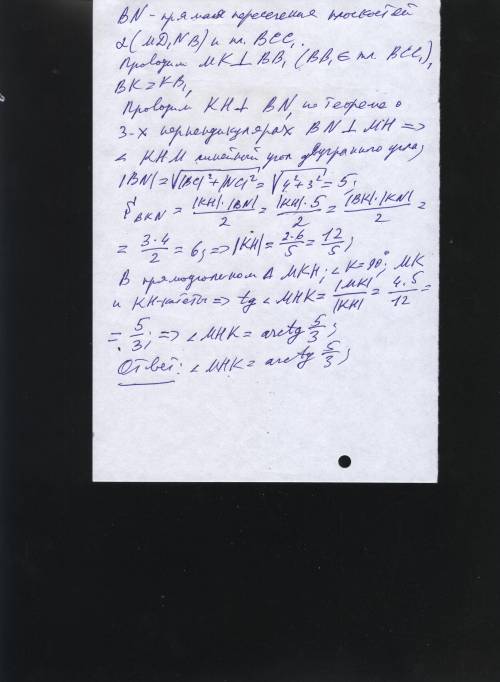 BN - прямая пересечения плоскостей
α(MD₁NB) и пл. BCC₁.
Проводим MK⊥BB₁ (BB₁∈ пл. BCC₁),
BK=KB₁
Проводим KH⊥BN, по теореме о
3-х перпендикулярах BN⊥MH =>
∠KHM линейный угол двугранного угла;
|BN|=√(|BC|²+|NC|²)=√(4²+3²)=5;
S BKN = |KH|·|BN|/2 = |KH|·5/2 = |BK|·|KN|/2 =
= 3·4/2 = 6; => |KH| = 2·6/5 = 12/5;
В прямоугольном Δ MKH; ∠K=90°; MK
и KH-катеты => tg∠MHK = |MK|/|KH| = 4·5/12 =
= 5/3; => ∠MHK = arctg 5/3;
Ответ: ∠MHK = arctg 5/3;